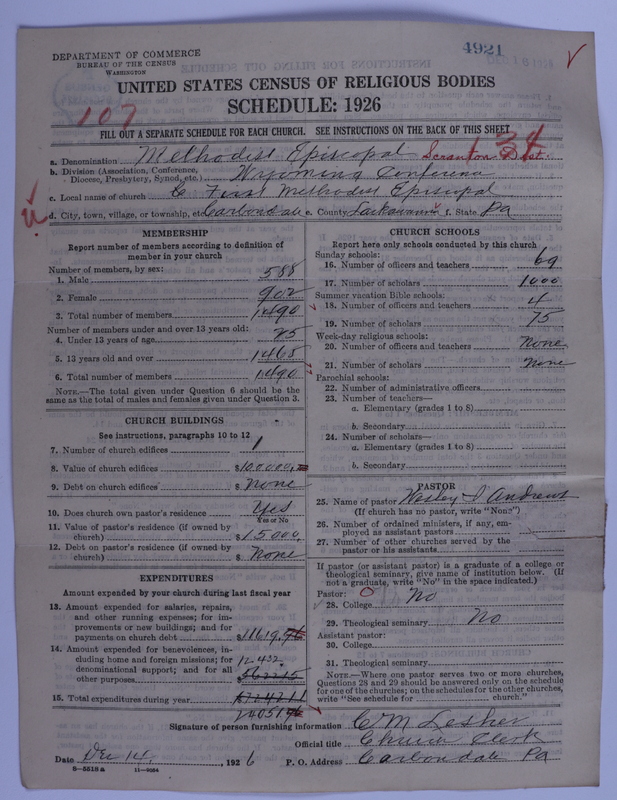 4921
DEPARTMENT OF COMMERCE
BUREAU OF THE CENSUS
WASHINGTON
UNITED STATES CENSUS OF RELIGIOUS BODIES
SCHEDULE: 1926
107
FILL OUT A SEPARATE SCHEDULE FOR EACH CHURCH. SEE INSTRUCTIONS ON THE BACK OF THIS SHEET
a. Denomination Methodist Episcopal Scranton Dist. 34
b. Division (Association, Conference, Diocese, Presbytery, Synod, etc.) Wyoming Conference
c. Local name of church First Methodist Episcopal
d. City, town, village, or township, etc. Carbondale e. County Lackawanna f. State Pa
MEMBERSHIP
Report number of members according to definition of
member in your church
Number of members, by sex:
1. Male 588
2. Female 902
3. Total number of members 1490
Number of members under and over 13 years old:
4. Under 13 years of age 25
5. 13 years old and over 1465
6. Total number of members 1490
NOTE.—The total given under Question 6 should be the
same as the total of males and females given under Question 3.
CHURCH BUILDINGS
See instructions, paragraphs 10 to 12
7. Number of church edifices 1
8. Value of church edifices $100000.
9. Debt on church edifices $ None
10. Does church own pastor's residence Yes
Yes or No
11. Value of pastor's residence (if owned by
church) $15000.
12. Debt on pastor's residence (if owned by
church) $ None
EXPENDITURES
Amount expended by your church during last fiscal year
13. Amount expended for salaries, repairs,
and other running expenses; for im-
provements or new buildings; and for
payments on church debt $11619.96
14. Amount expended for benevolences, in-
cluding home and foreign missions; for
denominational support; and for all
other purposes 12432.
15. Total expenditures during year
24051.96
CHURCH SCHOOLS
Report here only schools conducted by this church
Sunday schools:
16. Number of officers and teachers 69
17. Number of scholars 1000
Summer vacation Bible schools:
18. Number of officers and teachers 4
19. Number of scholars 75
Week-day religious schools:
20. Number of officers and teachers None
21. Number of scholars None
Parochial schools:
22. Number of administrative officers
23. Number of teachers—
a. Elementary (grades 1 to 8)
b. Secondary
24. Number of scholars—
a. Elementary (grades 1 to 8)
b. Secondary
PASTOR
25. Name of pastor Wesley I Andrews
(If church has no pastor, write "None")
26. Number of ordained ministers, if any, em-
ployed as assistant pastors
27. Number of other churches served by the
pastor or his assistants
If pastor (or assistant pastor) is a graduate of a college or
theological seminary, give name of institution below. (If
not a graduate, write "No" in the space indicated.)
Pastor: O
28. College No
29. Theological seminary No
Assistant pastor:
30. College
31. Theological seminary
NOTE.—Where one pastor serves two or more churches,
Questions 28 and 29 should be answered only on the schedule
for one of the churches; on the schedules for the other churches,
write "See schedule for church."
Signature of person furnishing information C M Lesher
Official title Church Clerk
Date Dec 14, 1926 P. O. Address Carbondale Pa
8—5518a 11—9064